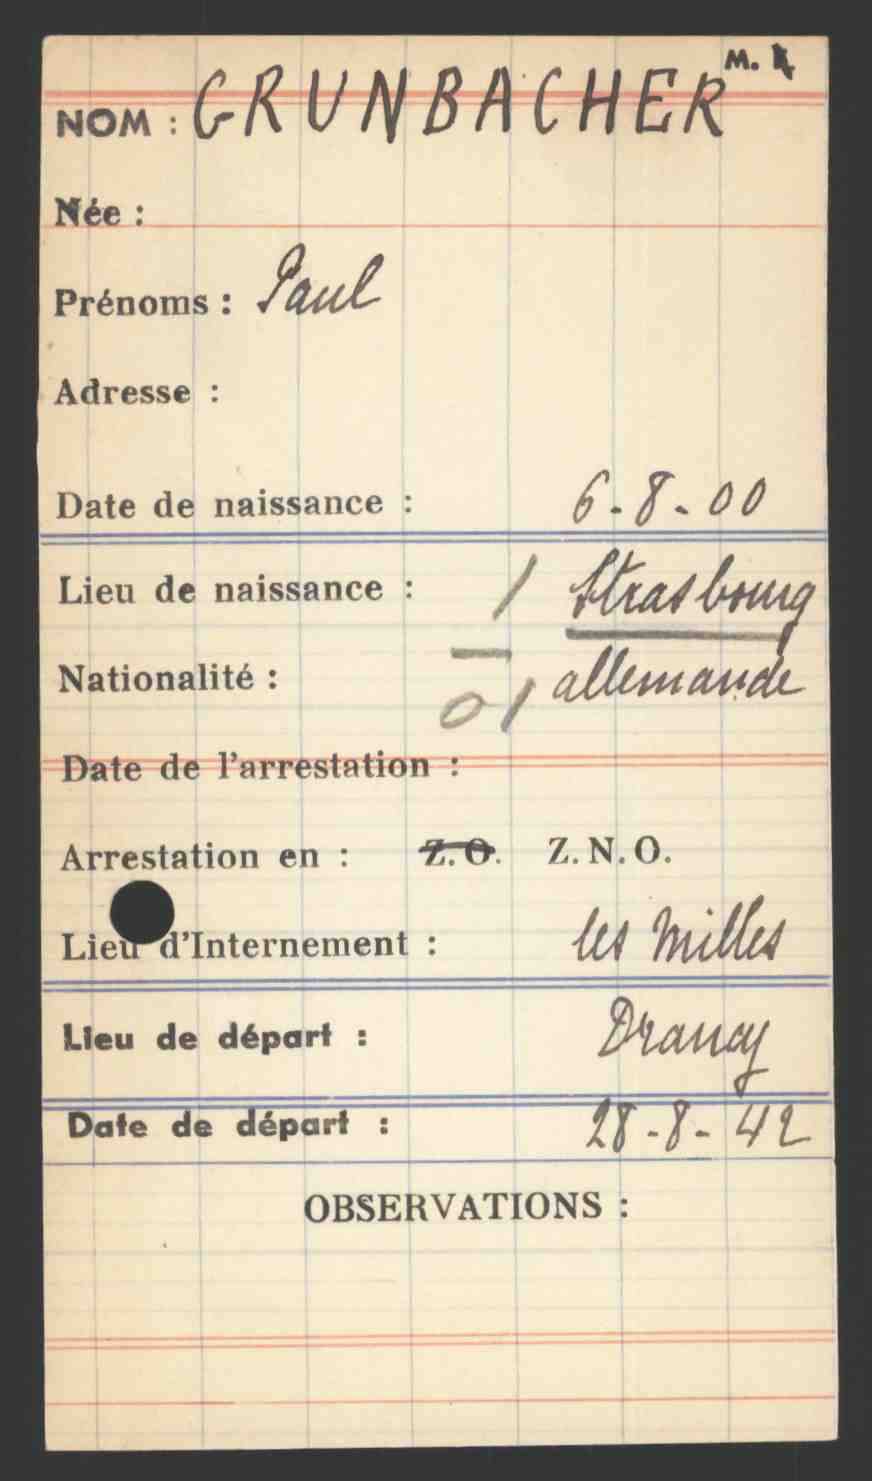 M. 4
NOM : GRUNBACHER
Née :
Prénoms : Paul
Adresse :
Date de naissance : 6-8-00
Lieu de naissance : / Strasbourg
Nationalité : 0 / allemande
Date de l'arrestation :
Arrestation en : Z.O. Z.N.O.
Lieu d'Internement : les Milles
Lieu de départ : Drancy
Date de départ : 28-8-42
OBSERVATIONS :